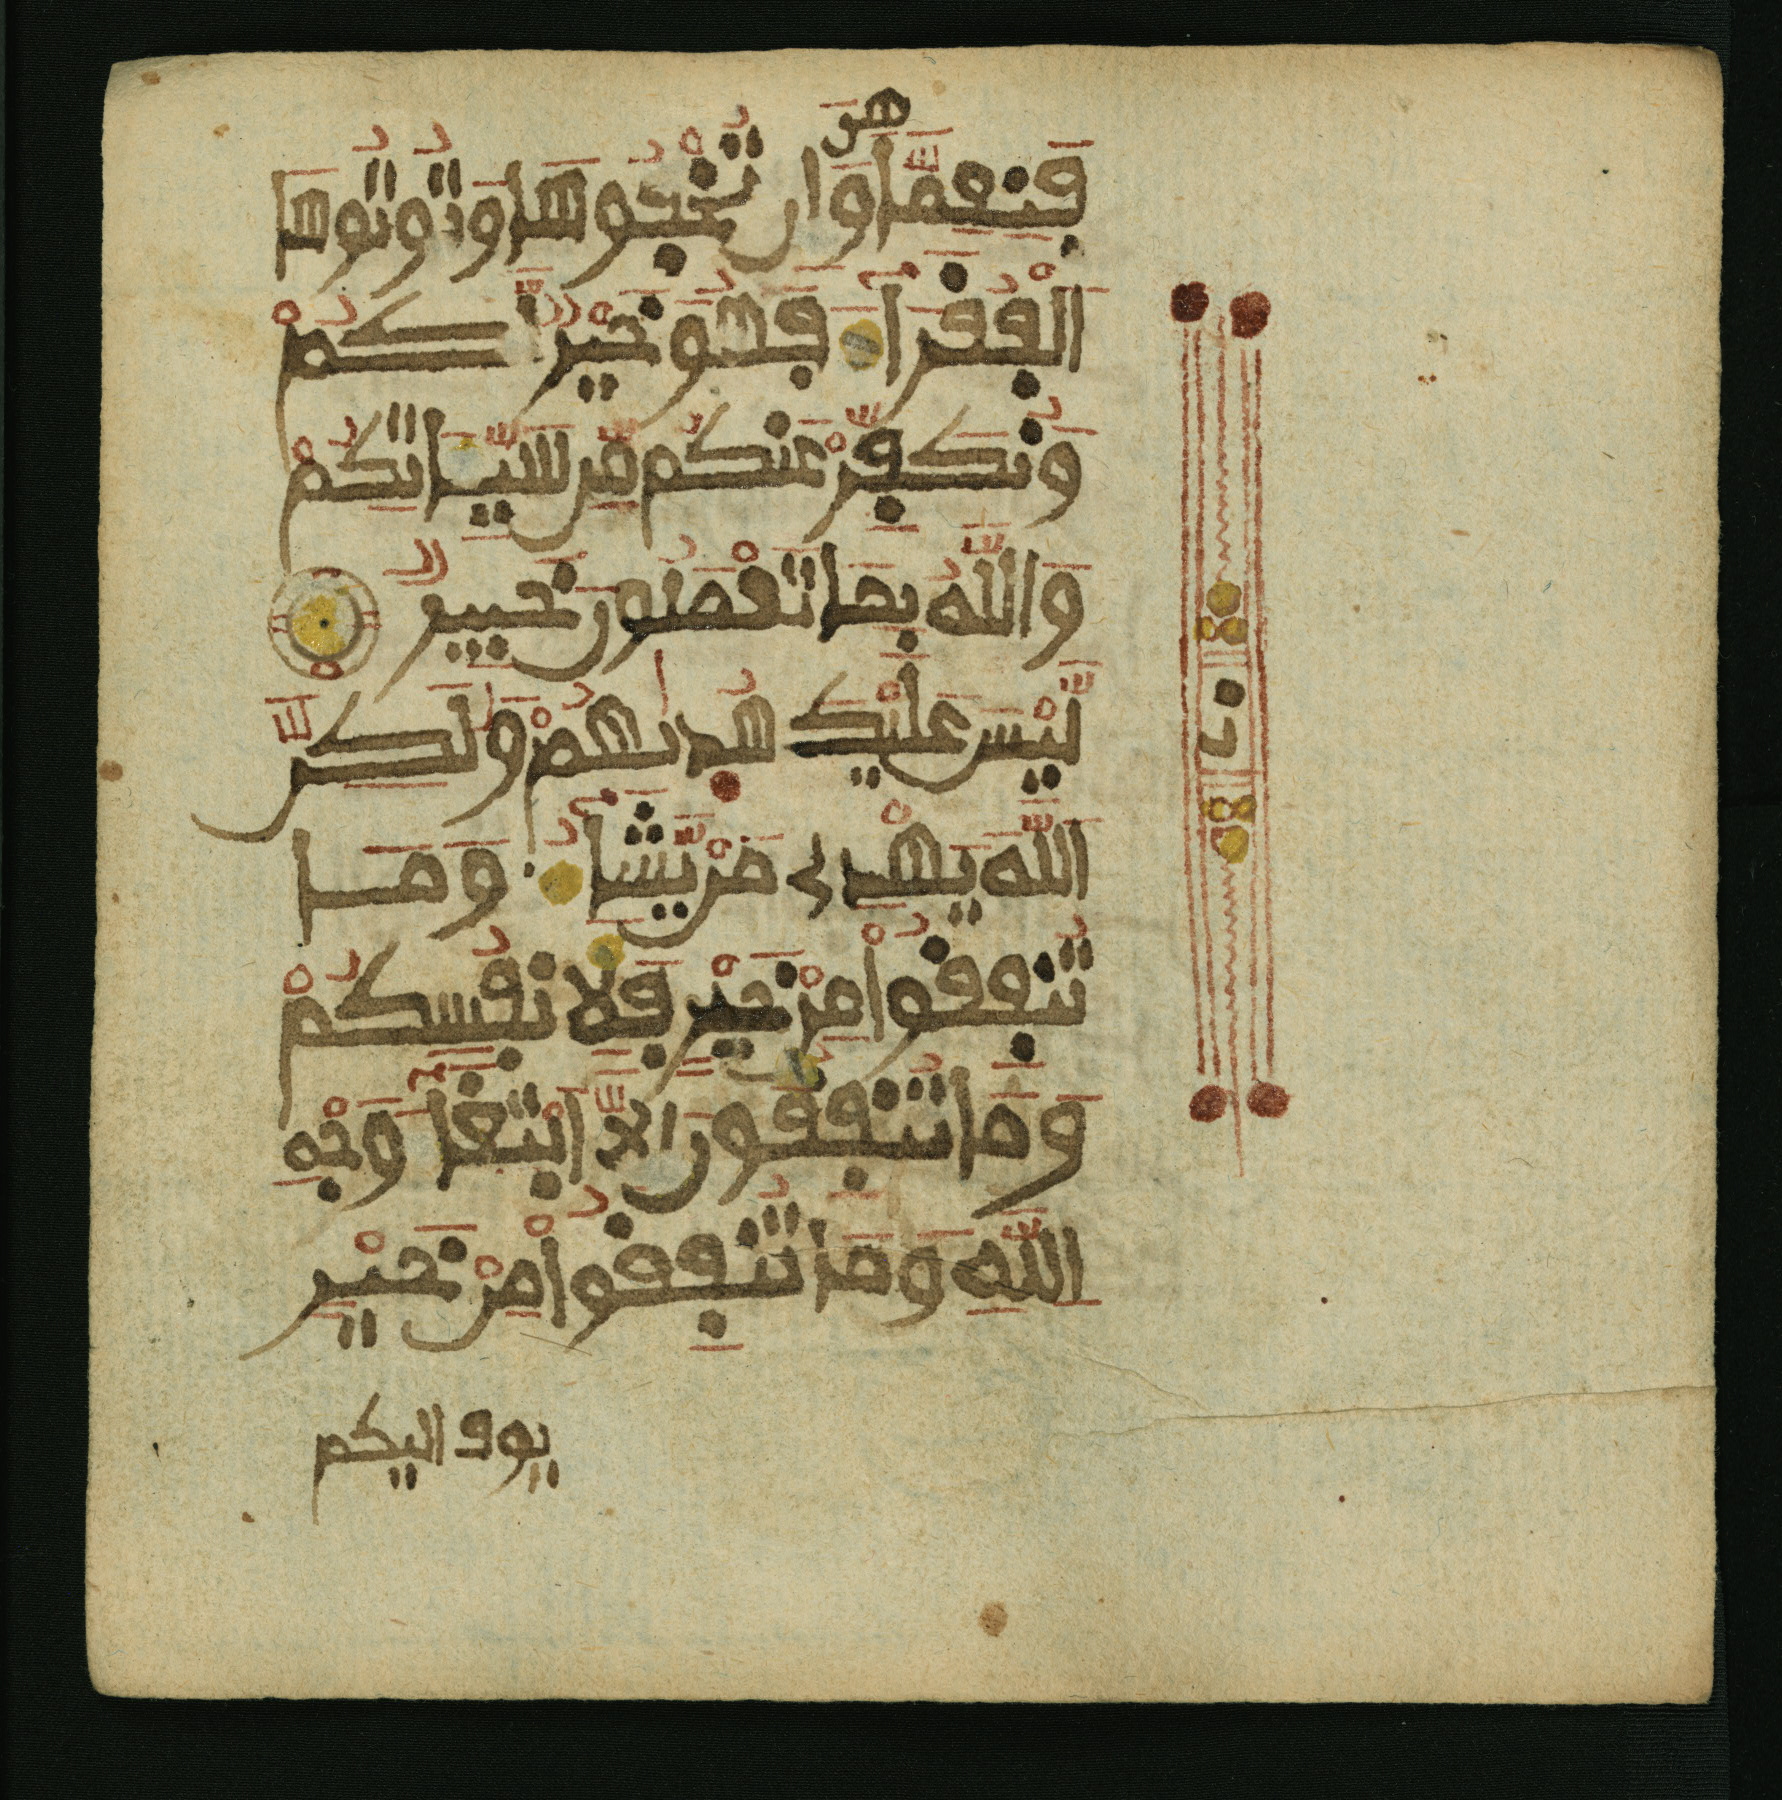 هى
فَنِعِمَّا وَإِن تُخْفُوهَا وَتُوتُوهَا
اَلْفُقَرَآءَ فَهُوَ خَيْرٌ لَّكُمْ
وَنُكَفِّرْ عَنكُم مِّن سَيِّـَٔاتِكُمْ
وَاللَّهُ بِمَا تَعْمَلُونَ خَبِيرٌ
لَّيْسَ عَلَيْكَ هُدٜىٰهُمْ وَلَٰكِنَّ
اَللَّهَ يَهْدِے مَنْ يَّشَآءُ وَمَا
تُنفِقُوا مِنْ خَيْرٍ فَلِأَنفُسِكُمْ
وَمَا تُنفِقُونَ إِلَّا اَبْتِغَآءَ وَجْهِ
اِللَّهِ وَمَا تُنفِقُوا مِنْ خَيْرٍ
يوف اليكم